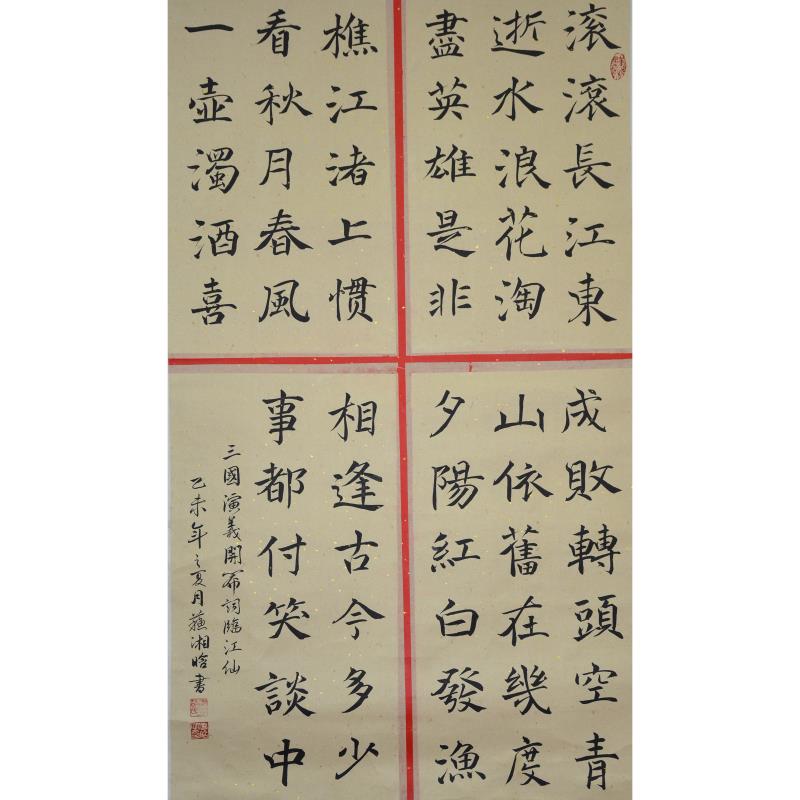 滚滚長江東
逝水浪花淘
盡英雄是非
成敗轉頭空青
山依舊在幾度
夕陽紅白發漁
樵江渚上惯
看秋月春風
一壶濁酒喜
相逢古今多少
事都付笑談中
三國演義開篇詞臨江仙
乙未年之夏月蘇湘晗書